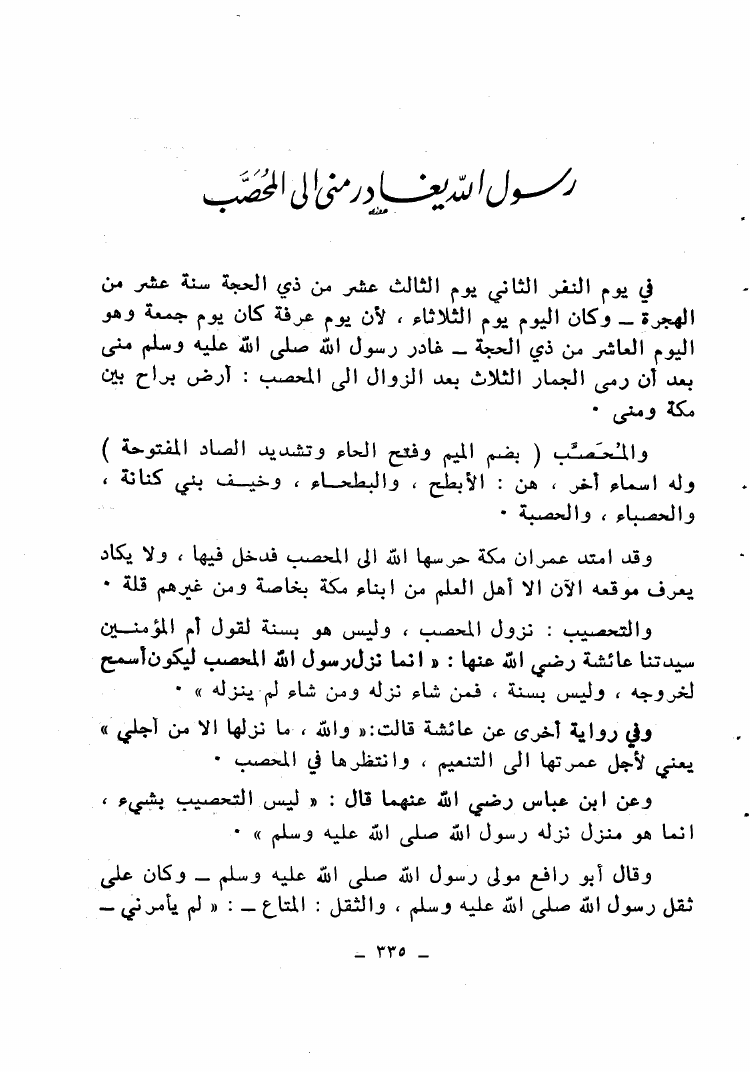 رسول الله يغادر منى الى المُحَصَّب
في يوم النفر الثاني يوم الثالث عشر من ذي الحجة سنة عشر من
الهجرة ــ وكان اليوم يوم الثلاثاء ، لأن يوم عرفة كان يوم جمعة وهو
اليوم العاشر من ذي الحجة ــ غادر رسول الله صلى الله عليه وسلم منى
بعد أن رمى الجمار الثلاث بعد الزوال الى المحصب : أرض براح بين
مكة ومنى ٠
والمُحَصَّب ( بضم الميم وفتح الحاء وتشديد الصاد المفتوحة )
وله اسماء أخر ، هن : الأبطح ، والبطحاء ، وخيف بني كنانة ،
والحصباء ، والحصبة ٠
وقد امتد عمران مكة حرسها الله الى المحصب فدخل فيها ، ولا يكاد
يعرف موقعه الآن الا أهل العلم من ابناء مكة بخاصة ومن غيرهم قلة ٠
والتحصيب : نزول المحصب ، وليس هو بسنة لقول أم المؤمنين
سيدتنا عائشة رضي الله عنها : « انما نزل رسول الله المحصب ليكون أسمح
لخروجه ، وليس بسنة ، فمن شاء نزله ومن شاء لم ينزله » ٠
وفي رواية أخرى عن عائشة قالت : « والله ، ما نزلها الا من أجلي »
يعني لأجل عمرتها الى التنعيم ، وانتظرها في المحصب ٠
وعن ابن عباس رضي الله عنهما قال : « ليس التحصيب بشيء ،
انما هو منزل نزله رسول الله صلى الله عليه وسلم » ٠
وقال أبو رافع مولى رسول الله صلى الله عليه وسلم ــ وكان على
ثقل رسول الله صلى الله عليه وسلم ، والثقل : المتاع ــ : « لم يأمرني ــ
ــ ٣٣٥ ــ